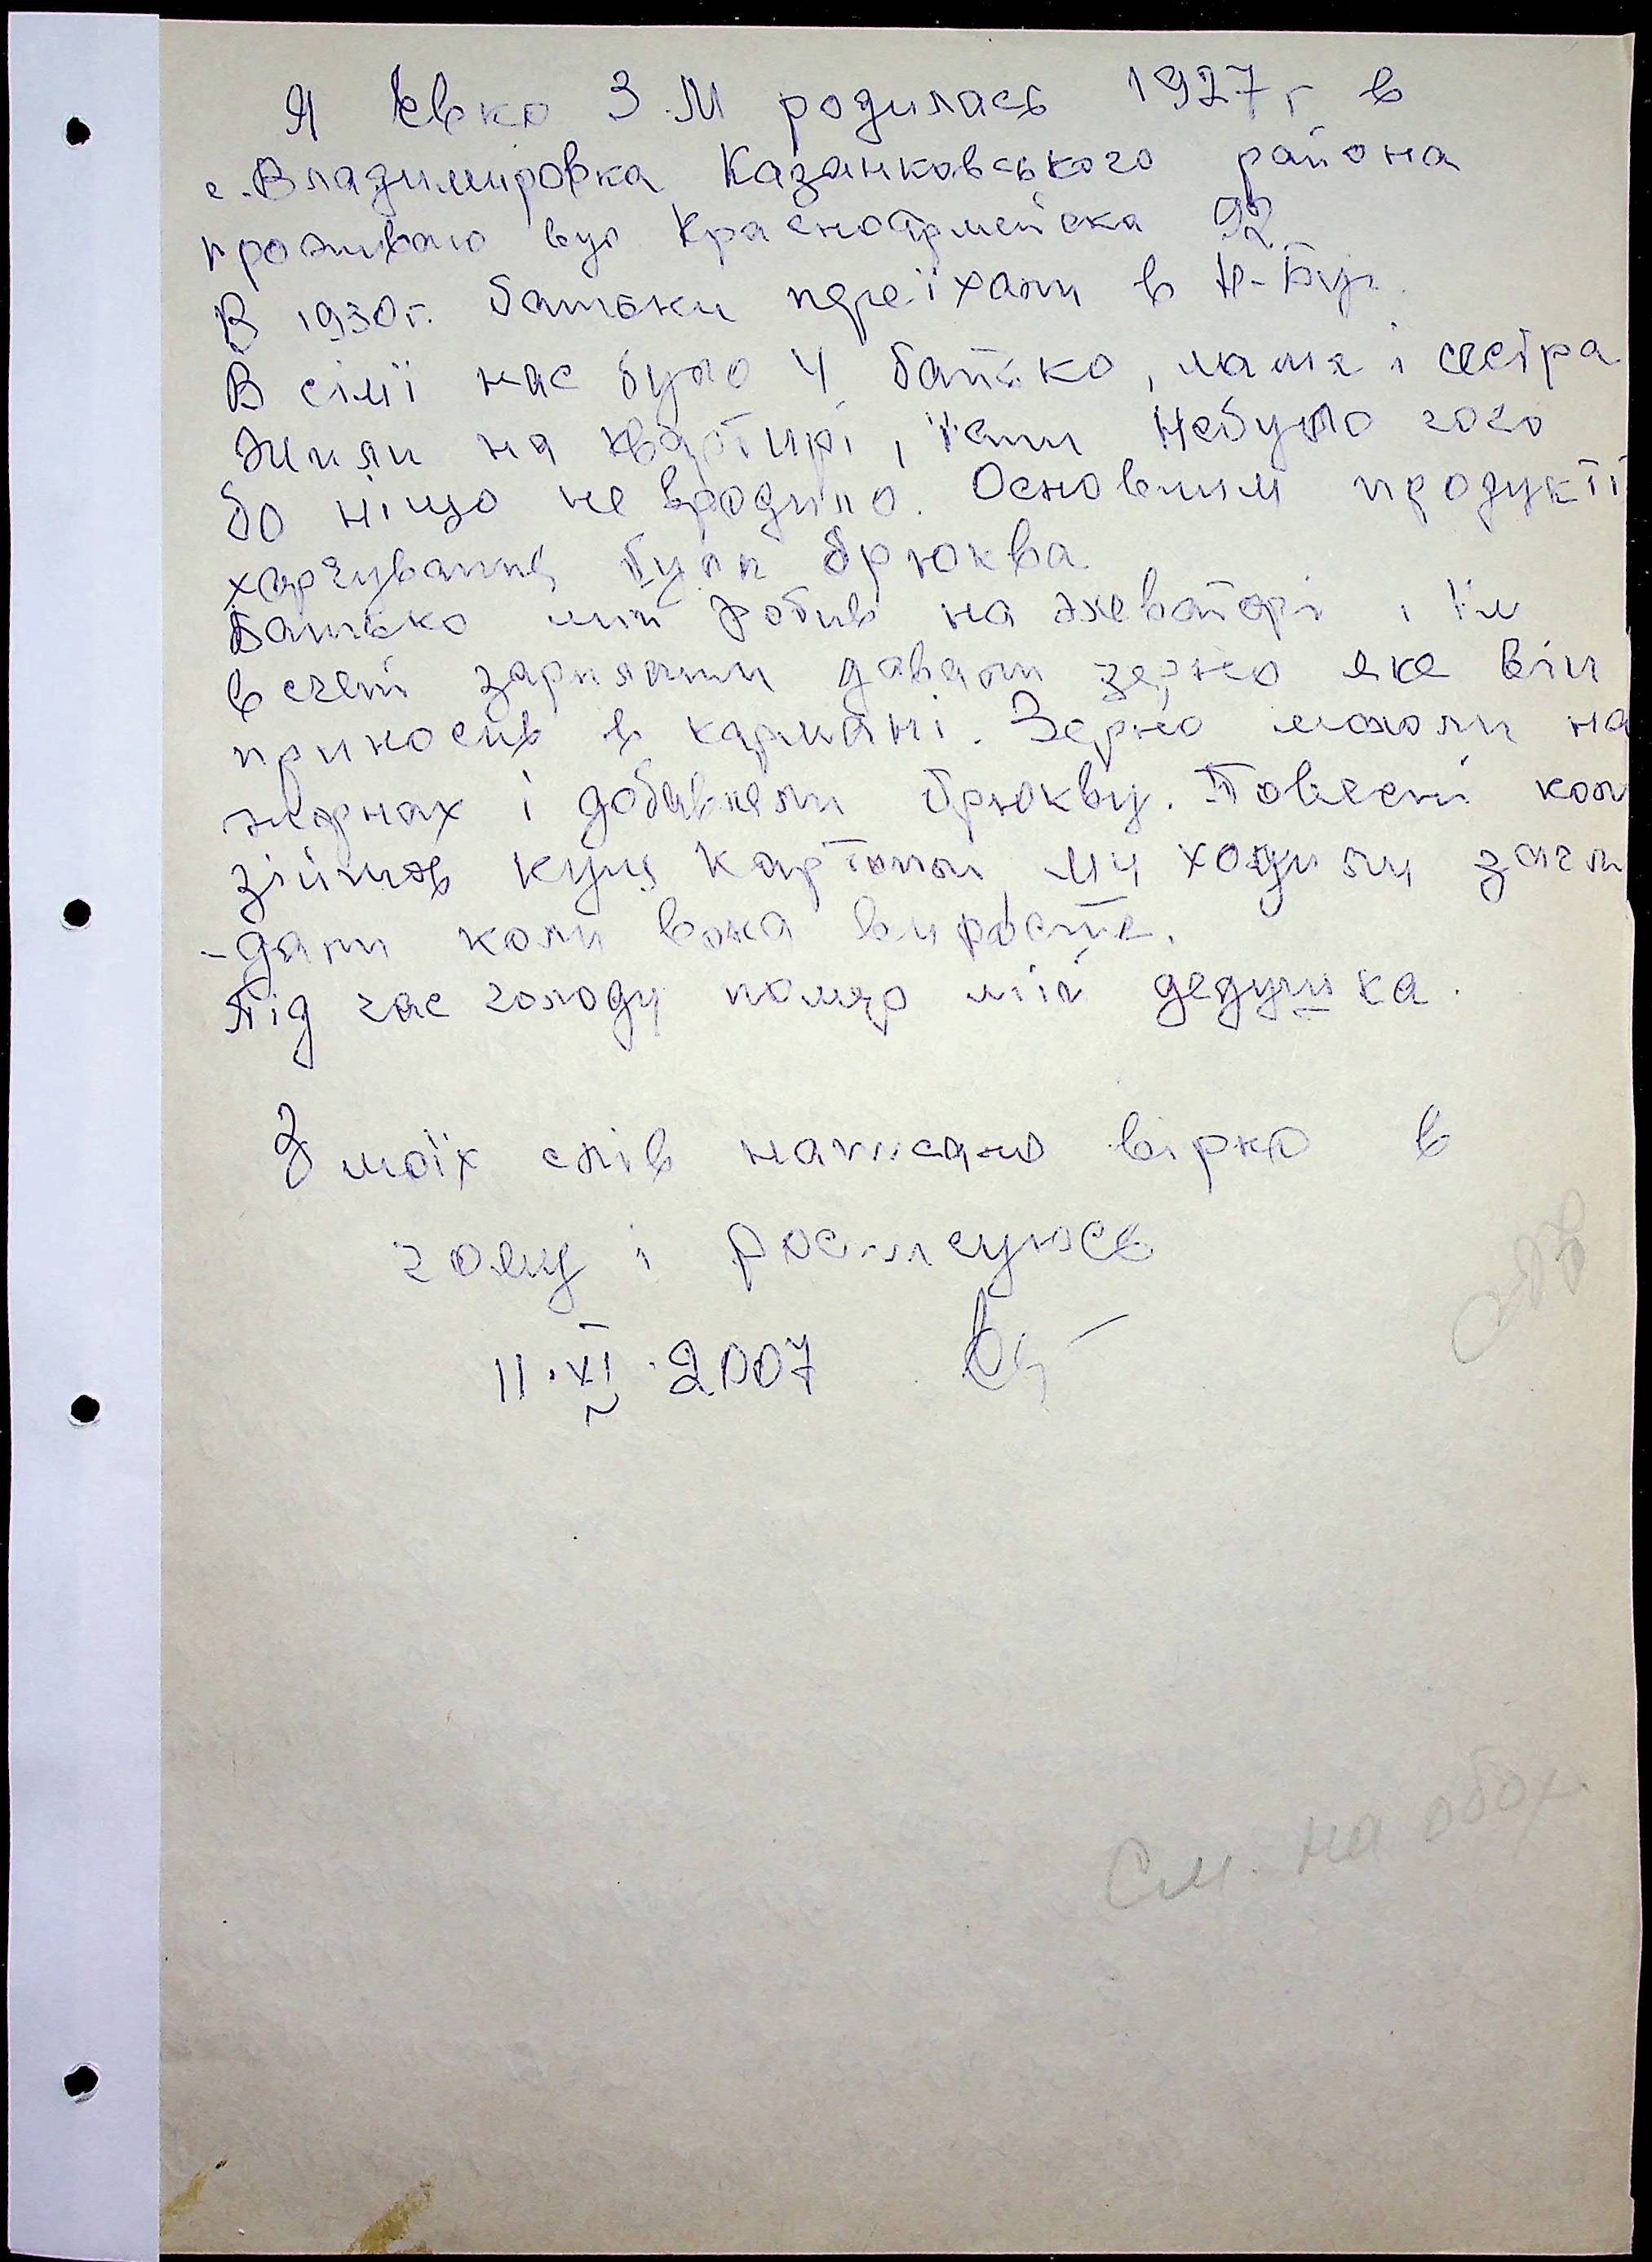 Я Євко З.М родилась 1927 г в
с. Владимировка Казанковського района
проживаю вул Красноармейска 92
В 1930г. батьки переїхали в Н-Буг.
В сімї нас було 4 батько, мама і сестра
Жили на квартирі, їсти небуло чого
бо нічого не вродило. Основним продуктії
харчування була брюква
Батько мій робив на элеваторі і їм
в счет зарплати давали зерно яке він
приносив в кармані. Зерно мололи на
жорнах і добавляли брюкву. Повесні коли
зійшов кущ картоплі ми ходили загля
-дати коли вона виросте.
Під час голоду помер мій дедушка.
З моїх слів написано вірно в
чому і росписуюсь
11.XI.2007
См. на обох.